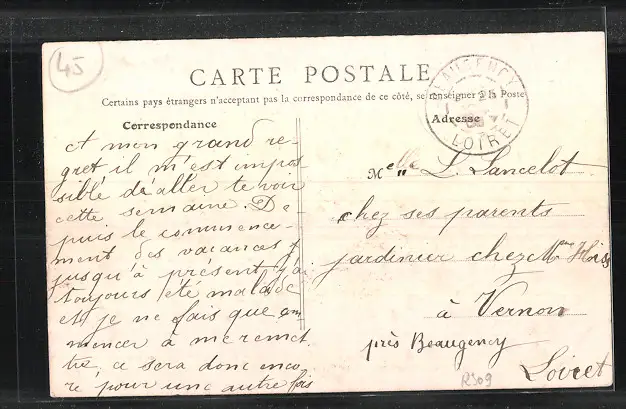 45
CARTE POSTALE
Certains pays étrangers n'acceptant pas la correspondance de ce côté, se renseigner à la Poste
Correspondance
A mon grand re-
gret, il m'est impos
sible de aller te voir
cette semaine. De-
puis le commence-
ment des vacances
jusqu'à présent, j'ai
toujours été malade
et je ne fais que com
mencer à me remet
tre, ce sera donc enco
re pour une autre fois
Adresse
BAUGENCY
LOIRET
Melle L. Lancelot
chez ses parents
jardinier chez Mme
à Vernon
près Beaugency
Loiret
R309